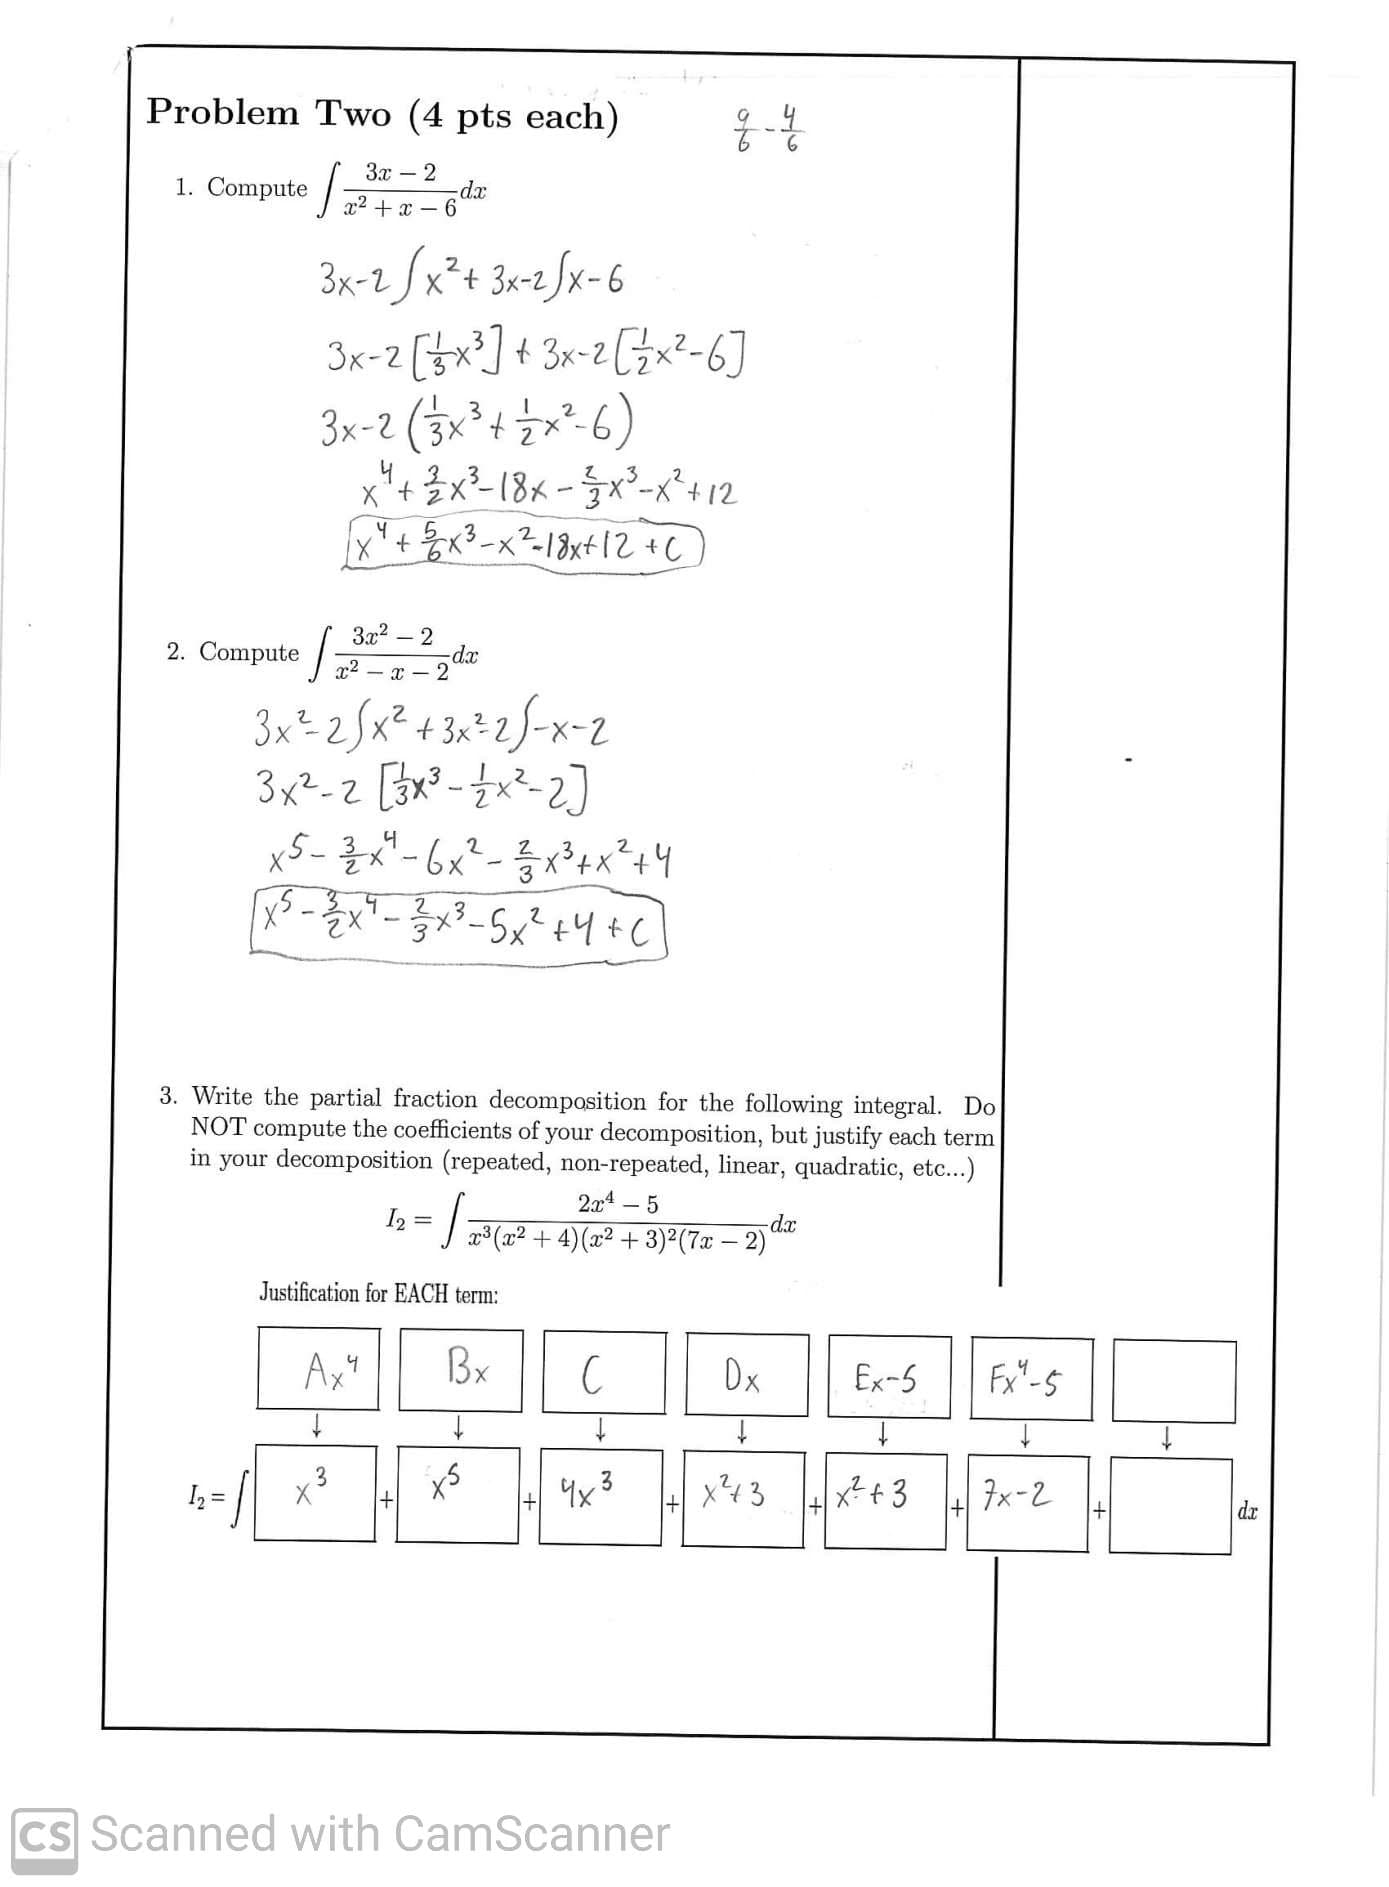 Problem Two (4 pts each)
9/6 - 4/6
1. Compute ∫ (3x − 2)/(x² + x − 6) dx
3x-2 ∫x² + 3x-2 ∫x-6
3x-2 [1/3 x³] + 3x-2 [1/2 x² - 6]
3x-2 (1/3 x³ + 1/2 x² - 6)
x⁴ + 3/2 x³ - 18x - 2/3 x³ - x² + 12
x⁴ + 5/6 x³ - x² - 18x + 12 + C
2. Compute ∫ (3x² − 2)/(x² − x − 2) dx
3x² - 2 ∫x² + 3x² - 2 ∫-x-2
3x² - 2 [1/3 x³ - 1/2 x² - 2]
x⁵ - 3/2 x⁴ - 6x² - 2/3 x³ + x² + 4
x⁵ - 3/2 x⁴ - 2/3 x³ - 5x² + 4 + C
3. Write the partial fraction decomposition for the following integral. Do
NOT compute the coefficients of your decomposition, but justify each term
in your decomposition (repeated, non-repeated, linear, quadratic, etc...)
I₂ = ∫ (2x⁴ − 5)/(x³(x² + 4)(x² + 3)²(7x − 2)) dx
Justification for EACH term:
Ax⁴ Bx C Dx Ex-5 Fx⁴-5
↓ ↓ ↓ ↓ ↓ ↓ ↓
I₂ = ∫ x³ + x⁵ + 4x³ + x²+3 + x²+3 + 7x-2 + dx
CS Scanned with CamScanner